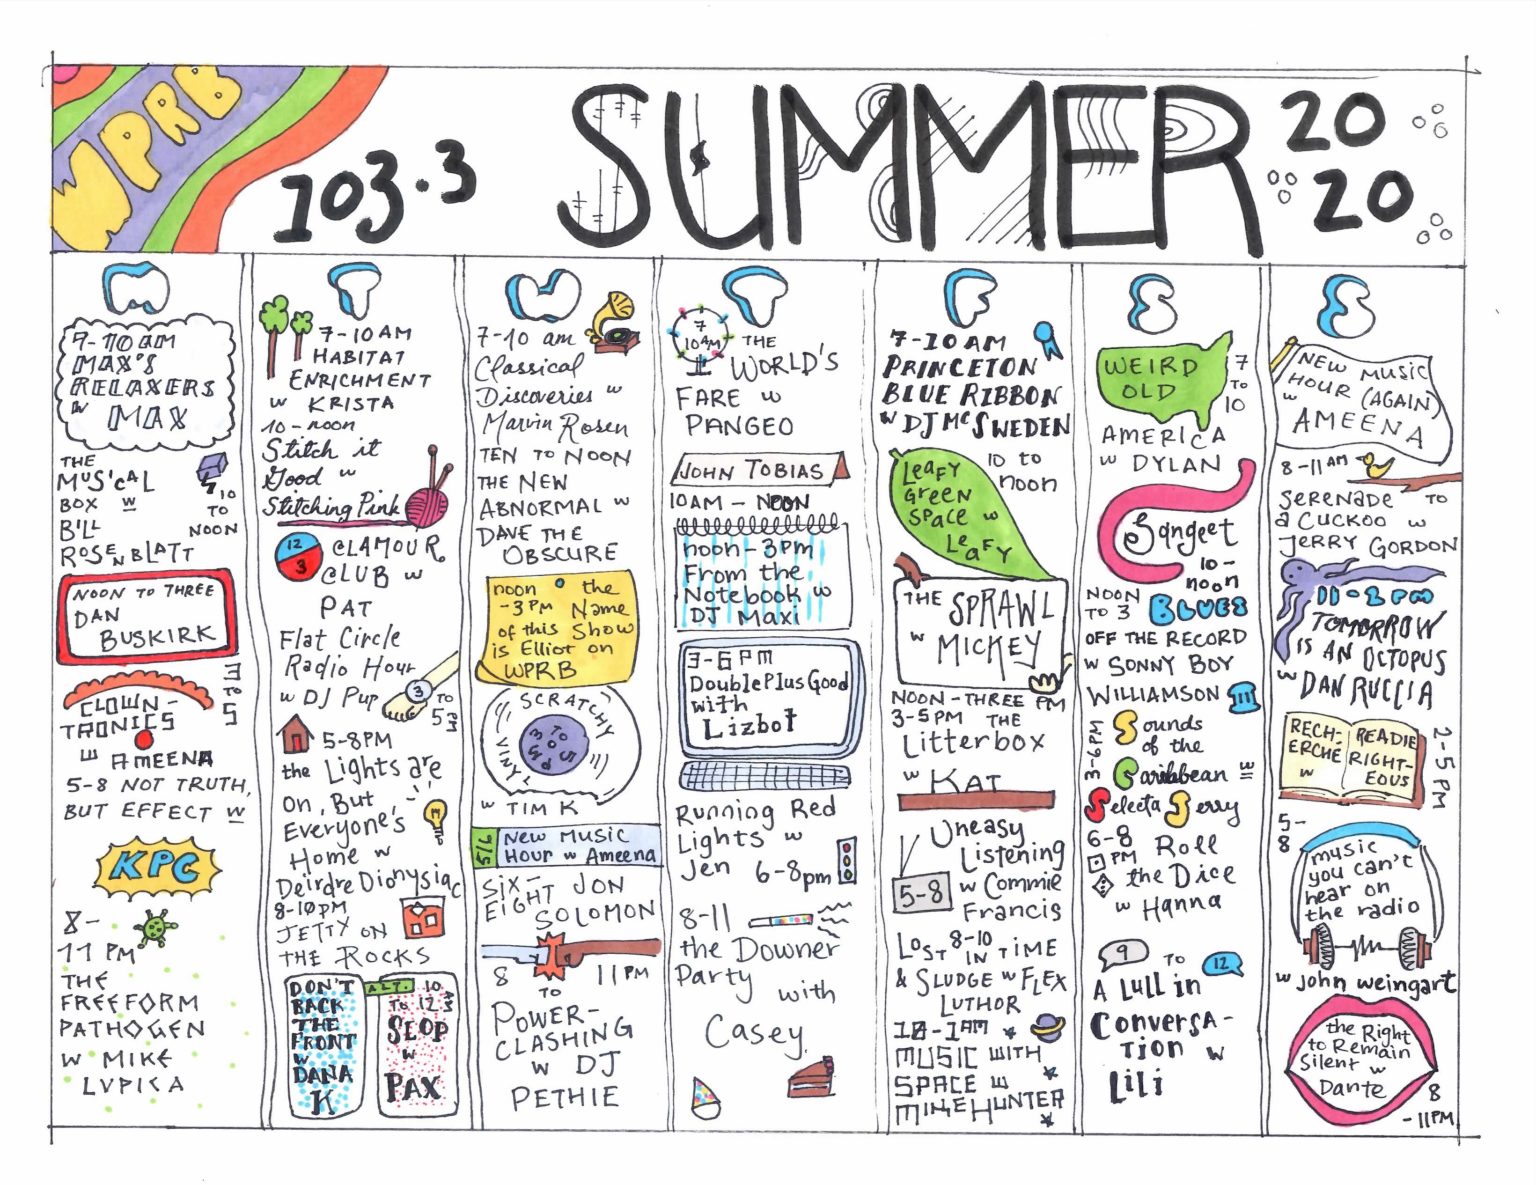 WPRB
103.3
SUMMER
20
20
M
7-10AM
MAX'S
RELAXERS
W MAX
THE
MUSICAL
BOX W
BILL
ROSENBLATT
10
TO
NOON
NOON TO THREE
DAN
BUSKIRK
3 TO 5
CLOWN-
TRONICS
W AMEENA
5-8 NOT TRUTH,
BUT EFFECT W
KPC
8-
11 PM
THE
FREEFORM
PATHOGEN
W MIKE
LUPICA
T
7-10AM
HABITAT
ENRICHMENT
W KRISTA
10-noon
Stitch it
Good w
Stitching Pink
12
3
CLAMOUR
CLUB W
PAT
Flat Circle
Radio Hour
w DJ Pup
3 TO
5 PM
5-8PM
the Lights are
on, But
Everyone's
Home w
Deirdre Dionysiac
8-10PM
JETTY ON
THE ROCKS
DON'T
BACK
THE
FRONT
W
DANA
K
ALT. 10
TO 12
SLOP
W
PAX
W
7-10 am
Classical
Discoveries w
Marvin Rosen
TEN TO NOON
THE NEW
ABNORMAL W
DAVE THE
OBSCURE
noon the
-3PM Name
of this Show
is Elliot on
WPRB
SCRATCHY
VINYL
3 TO 5 PM
W TIM K
5/6
NEW MUSIC
HOUR W AMEENA
SIX-
EIGHT JON
SOLOMON
8 TO 11PM
POWER-
CLASHING
W DJ
PETHIE
T
7
10AM
THE
WORLD'S
FARE W
PANGEO
JOHN TOBIAS
10AM - NOON
noon-3pm
From the
Notebook w
DJ Maxi
3-6PM
DoublePlusGood
with
Lizbot
Running Red
Lights w
Jen 6-8pm
8-11
the Downer
Party with
Casey
F
7-10AM
PRINCETON
BLUE RIBBON
W DJ McSWEDEN
LEAFY
GREEN
SPACE W
LEAFY
10 to
noon
THE SPRAWL
W MICKEY
NOON-THREE PM
3-5PM THE
Litterbox
W KAT
Uneasy
Listening
w Commie
Francis
5-8
8-10
LOST IN TIME
& SLUDGE W FLEX
LUTHOR
10-1AM
MUSIC WITH
SPACE W
MIKE HUNTER
S
WEIRD
OLD
7
TO
10
AMERICA
W DYLAN
Sangeet
10-
noon
NOON
TO 3 BLUES
OFF THE RECORD
W SONNY BOY
WILLIAMSON III
3-6PM
Sounds
of the
Caribbean W
Selecta Jerry
6-8
PM Roll
the Dice
w Hanna
9 TO 12
A Lull in
Conversa-
tion w
Lili
S
NEW MUSIC
HOUR (AGAIN)
W AMEENA
8-11AM
SERENADE TO
a CUCKOO W
JERRY GORDON
11-2PM
TOMORROW
IS AN OCTOPUS
W DAN RUCCIA
RECH-
ERCHE
W
READIE
RIGHT-
EOUS
2-5 PM
5-
8
music
you can't
hear on
the radio
w John Weingart
the Right
to Remain
Silent w
Dante
8
-11PM